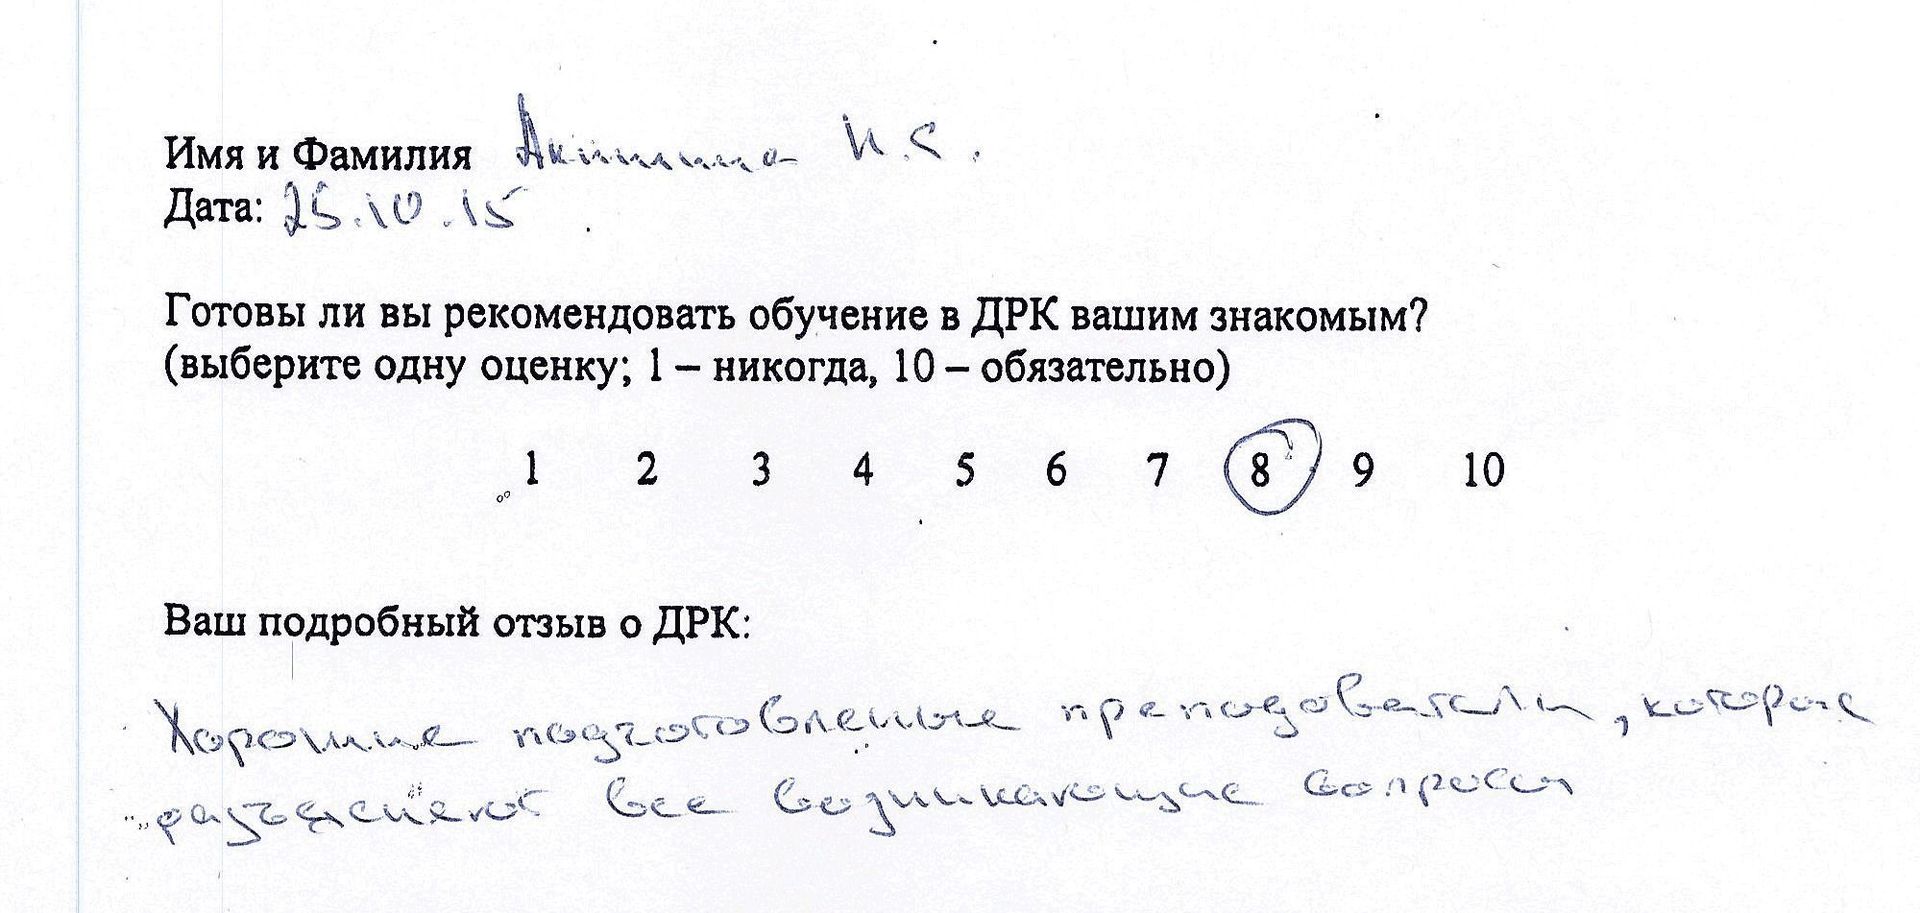 Имя и Фамилия Акишина И.С.
Дата: 25.10.15
Готовы ли вы рекомендовать обучение в ДРК вашим знакомым?
(выберите одну оценку; 1 – никогда, 10 – обязательно)
1 2 3 4 5 6 7 8 9 10
Ваш подробный отзыв о ДРК:
Хорошие подготовленые преподователи, которые
разъясняют все возникающие вопросы